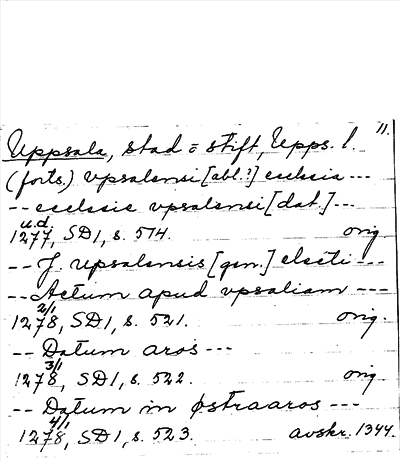 11.
Uppsala, stad o stift, Upps. l.
(forts.) vpsalensi [abl.?] ecclesia ---
-- ecclesie vpsalensi [dat.] ---
u.d.
1277, SD1, s. 514. orig.
-- J. upsalensis [gen.] elccti ---
-- Actum apud vpsaliam ---
2/1
1278, SD1, s. 521. orig.
-- Datum aros ---
3/1
1278, SD1, s. 522. orig
-- Datum in østraaros ---
4/1
1278, SD1, s. 523. avskr. 1344.